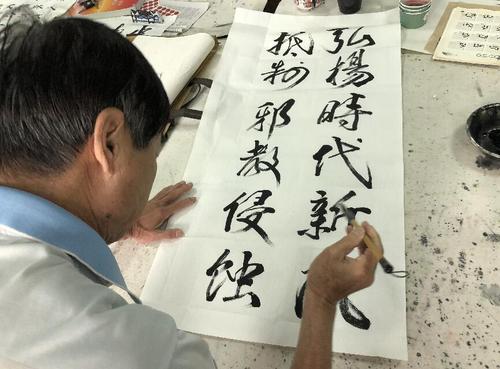 弘揚時代新
抵制邪教侵蚀